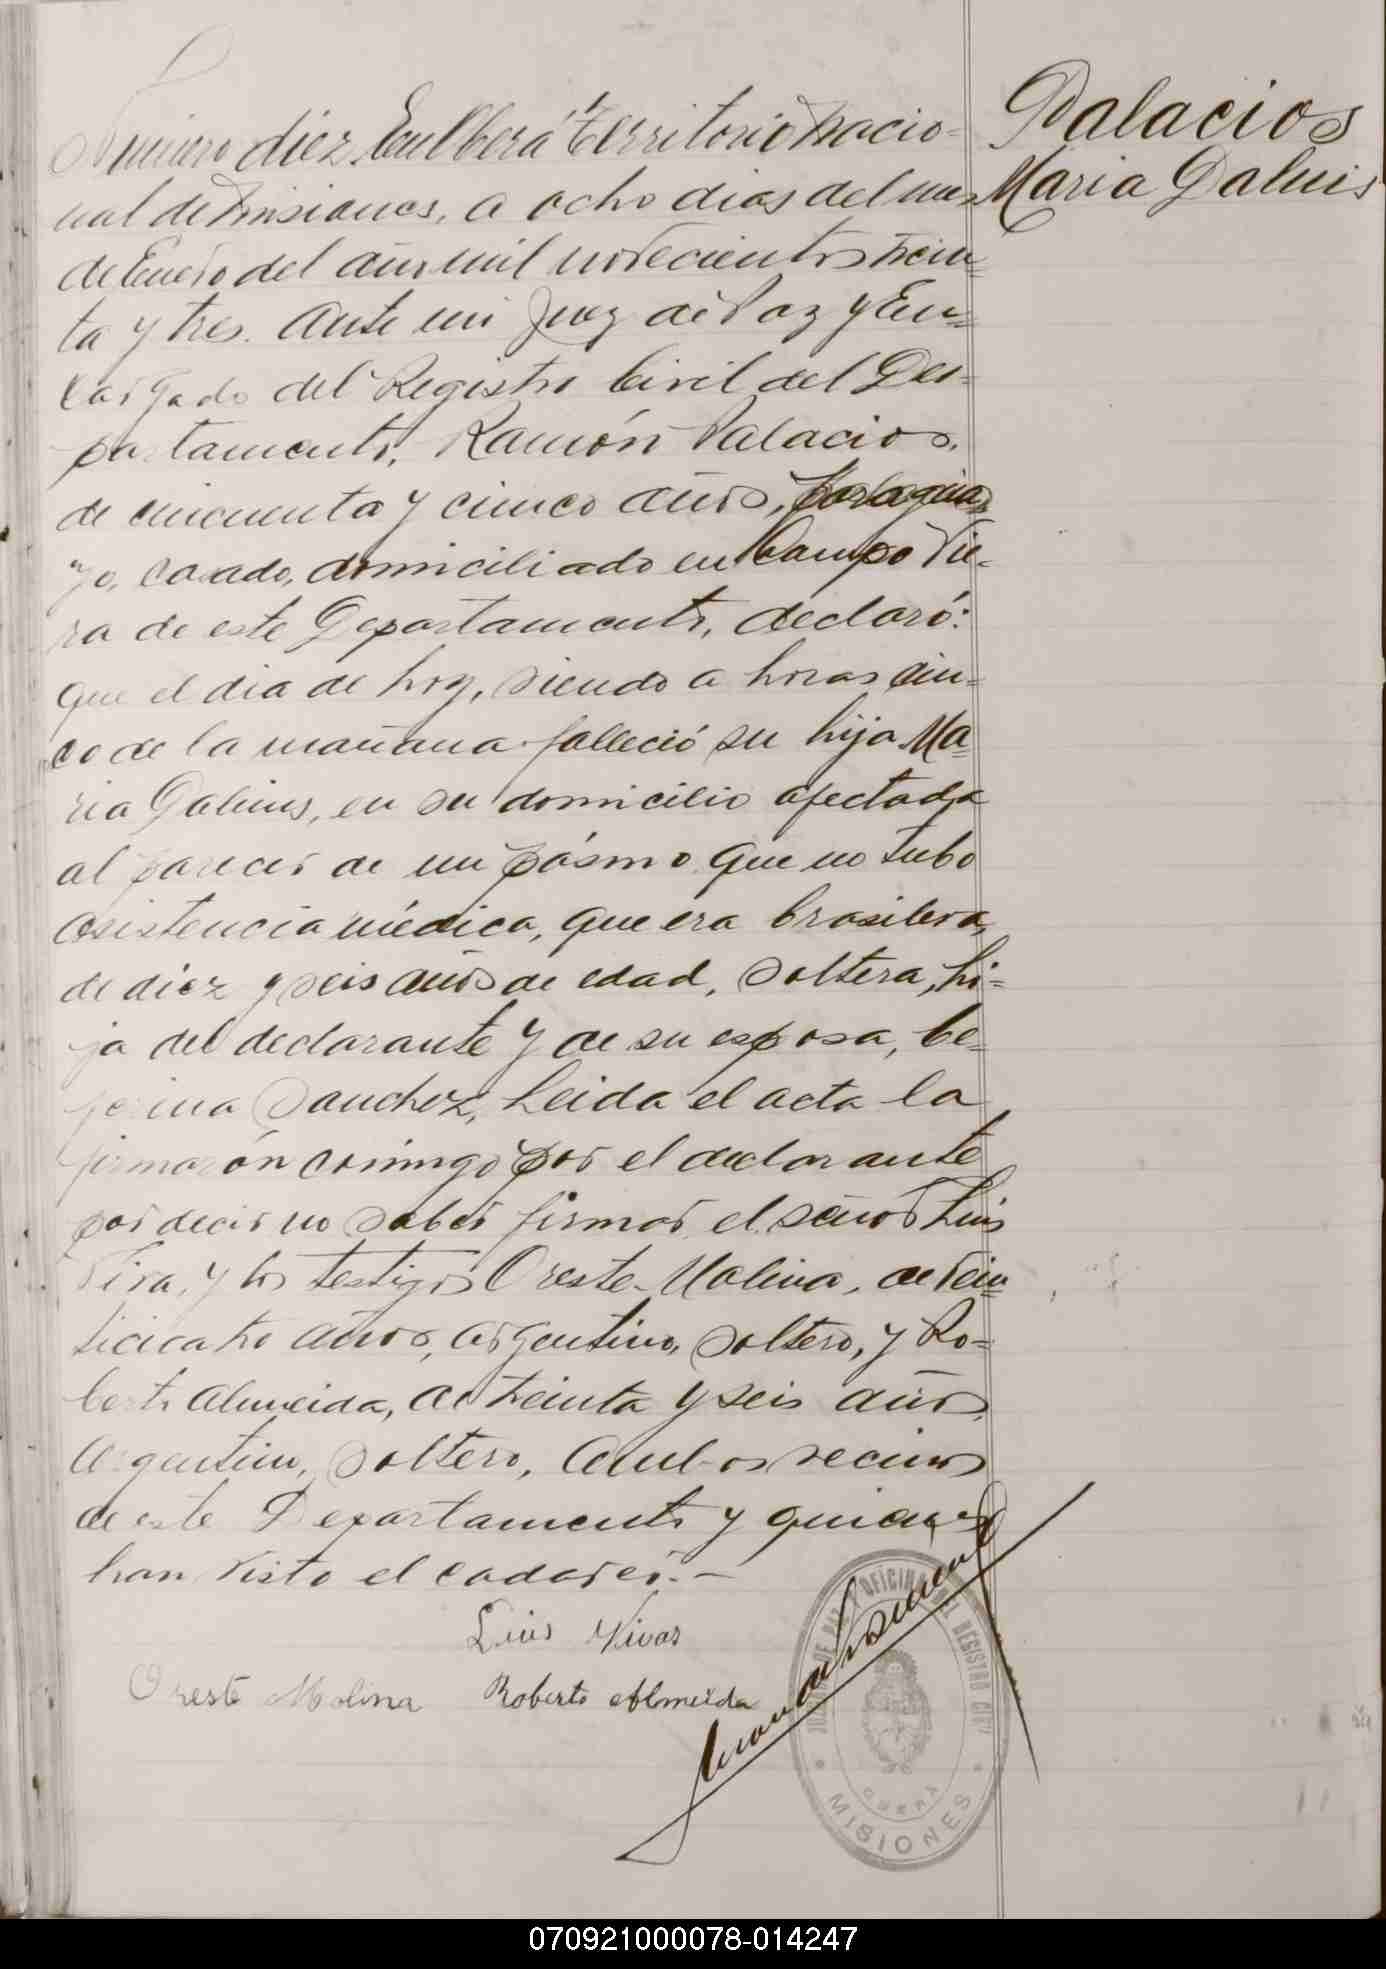 Palacios
Maria Daluis
Número diez. En Oberá Territorio Nacio-
nal de Misiones, a ocho dias del mes
de Enero del año mil novecientos trein-
ta y tres. Ante mi Juez de Paz y En-
cargado del Registro Civil del De-
partamento, Ramón Palacios,
de cincuenta y cinco años, paragua-
yo, casado, domiciliado en Campo Vie-
ra de este Departamento, declaró:
que el dia de hoy, siendo a horas cin-
co de la mañana falleció su hija Ma-
ria Daluis, en su domicilio afectada
al parecer de un pásmo que no tubo
asistencia médica, que era brasilera,
de diez y seis años de edad, soltera, hi-
ja del declarante y de su esposa, Ce-
ferina Sanchez, Leida el acta la
firmarón conmigo por el declarante
por decir no saber firmar el señor Luis
Viva, y los testigos Oreste Molina, de vein
ticicatro años, argentino, soltero, y Ro-
berto Almeida, de treinta y seis años,
argentino, soltero, ambos vecinos
de este Departamento y quienes
han visto el cadaver.-
Luis Vivas
Oreste Molina Roberto Almeida
JUZGADO DE PAZ Y OFICINA DEL REGISTRO CIVIL
OBERÁ
MISIONES
070921000078-014247